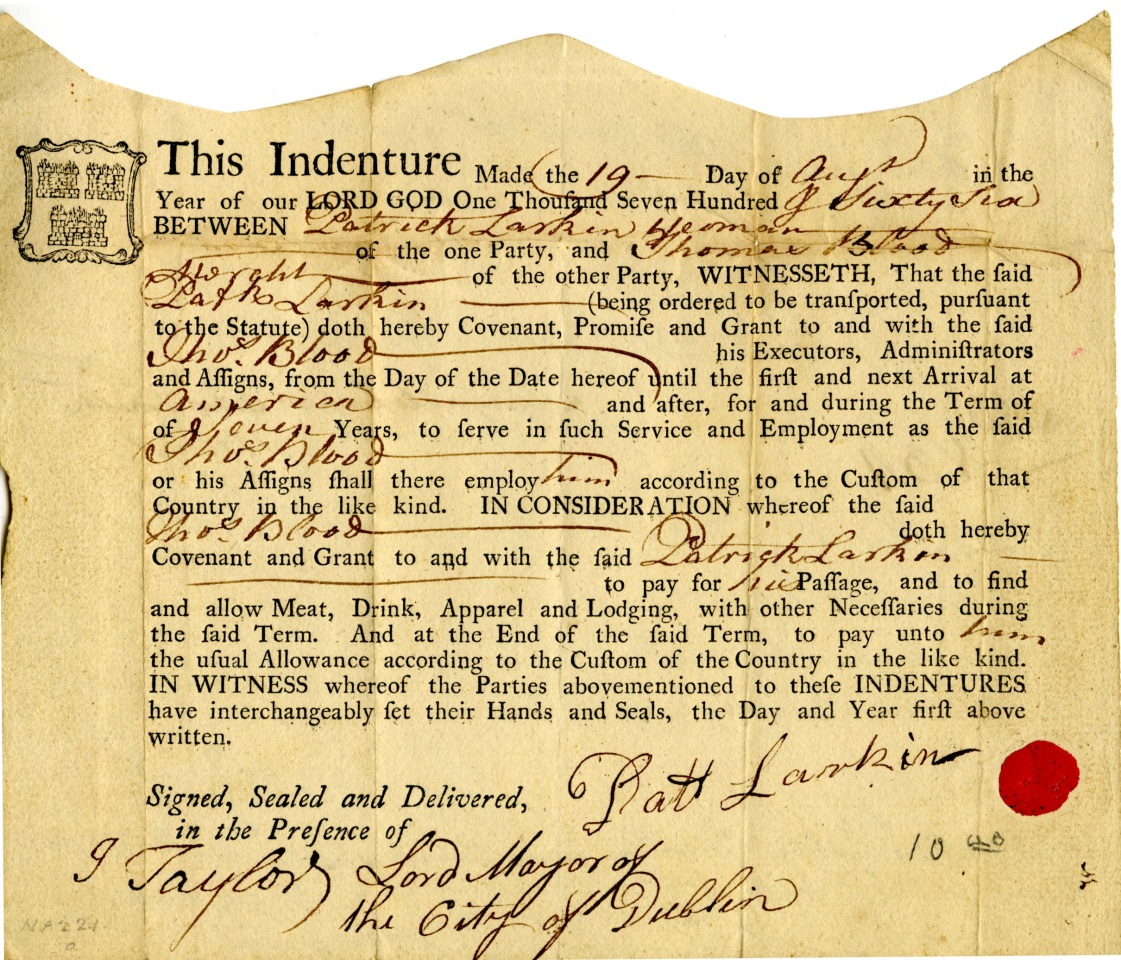 This Indenture Made the 19 Day of Augt in the
Year of our LORD GOD One Thouſand Seven Hundred & Sixty Six
BETWEEN Patrick Larkin Yeoman
of the one Party, and Thomas Blood
Mercht of the other Party, WITNESSETH, That the ſaid
Patk Larkin (being ordered to be tranſported, purſuant
to the Statute) doth hereby Covenant, Promiſe and Grant to and with the ſaid
Thos. Blood his Executors, Adminiſtrators
and Aſſigns, from the Day of the Date hereof until the firſt and next Arrival at
America and after, for and during the Term of
of Seven Years, to ſerve in ſuch Service and Employment as the ſaid
Thos. Blood
or his Aſſigns ſhall there employ him according to the Cuſtom of that
Country in the like kind. IN CONSIDERATION whereof the ſaid
Thos Blood doth hereby
Covenant and Grant to and with the ſaid Patrick Larkin
to pay for his Paſſage, and to find
and allow Meat, Drink, Apparel and Lodging, with other Neceſſaries during
the ſaid Term. And at the End of the ſaid Term, to pay unto him
the uſual Allowance according to the Cuſtom of the Country in the like kind.
IN WITNESS whereof the Parties abovementioned to theſe INDENTURES
have interchangeably ſet their Hands and Seals, the Day and Year firſt above
written.
Patt Larkin
Signed, Sealed and Delivered,
in the Preſence of
J Taylor Lord Mayor of
the City of Dublin
10